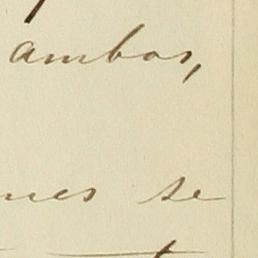 ambos,
nes se